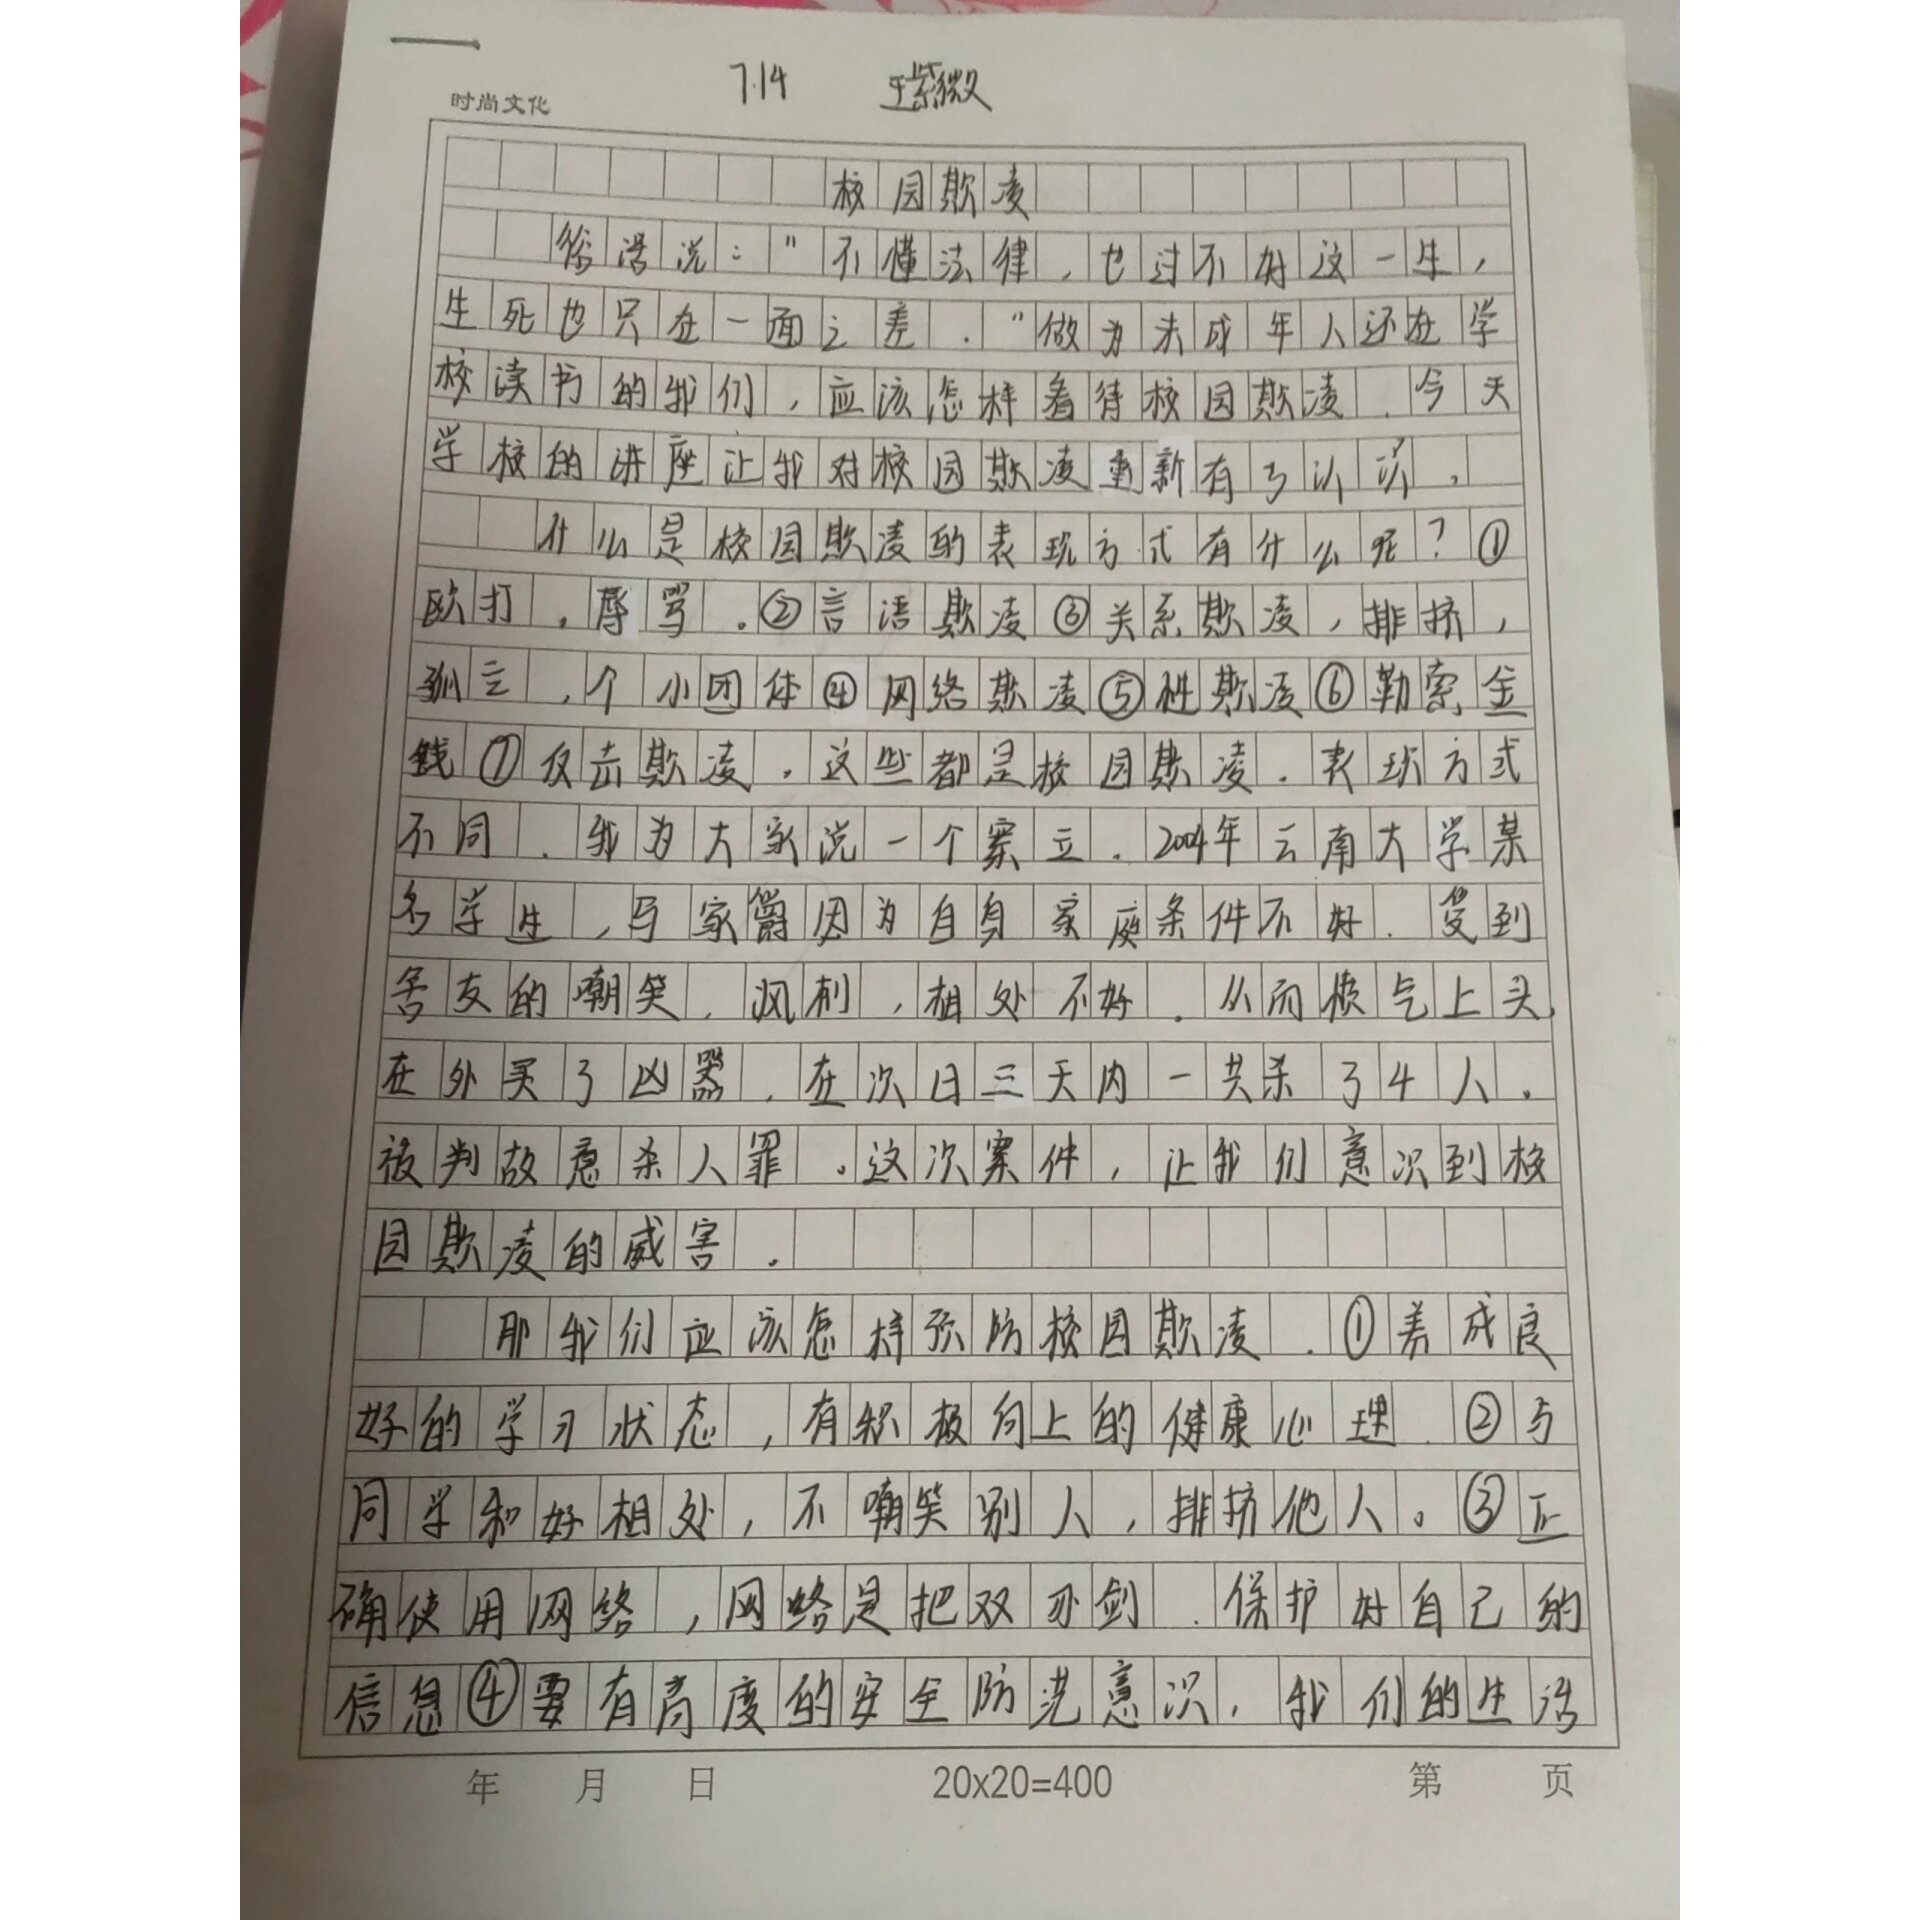 7.14 王紫微
时尚文化
校园欺凌
徐浩说："不懂法律，也过不好这一生，
生死也只在一面之差."做为未成年人还在学
校读书的我们，应该怎样看待校园欺凌.今天
学校的讲座让我对校园欺凌重新有了认识，
什么是校园欺凌的表现方式有什么呢？①
欧打，辱骂.②言语欺凌③关系欺凌，排挤，
孤立，个小团体④网络欺凌⑤性欺凌⑥勒索金
钱⑦反击欺凌。这些都是校园欺凌.表现方式
不同.我为大家说一个案立.2004年云南大学某
名学生，马家爵因为自身家庭条件不好.受到
舍友的嘲笑，讽刺，相处不好.从而怒气上头，
在外买了凶器，在次日三天内一共杀了4人.
被判故意杀人罪。这次案件，让我们意识到校
园欺凌的威害.
那我们应该怎样预防校园欺凌.①养成良
好的学习状态，有积极向上的健康心理.②与
同学和好相处，不嘲笑别人，排挤他人。③正
确使用网络，网络是把双刃剑.保护好自己的
信息④要有高度的安全防范意识，我们的生活
年 月 日 20x20=400 第 页